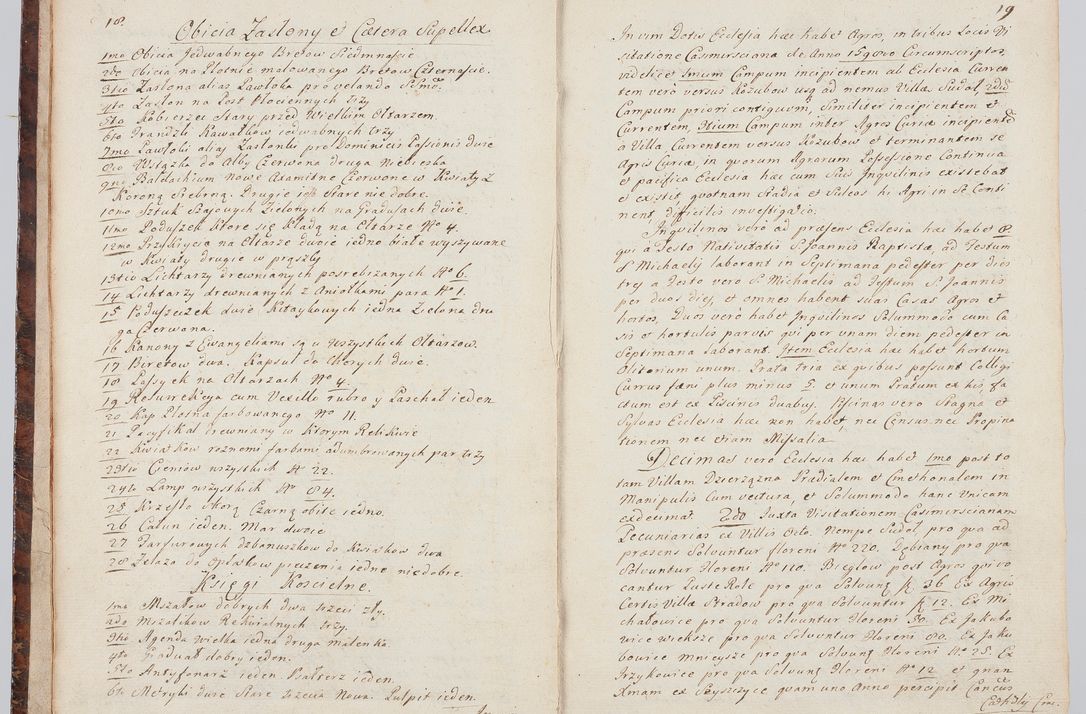 18.
Obicia Zasłony et Cætera Supellex
1mo Obicia Jedwabnego Bretow Siedmnaście
2do Obicia na Płotnie malowanego Bretow Czternaście.
3tio Zasłona alias Pawłoka pro velando SSmo.
4to Zasłon na Post Płociennych trzy
5to Kobierzec Stary przed Wielkim Ołtarzem.
6to Frandzli Kawałkow iedwabnych trzy
7mo Pawłoki alias Zasłonki pro Dominicis Passionis dwie
8vo Wstążka do Alby Czerwona druga Niebieska
9no Baldachium Nowe Adamitne Czerwone w Kwiaty Z
Koroną Srebrną. Drugie iest Stare nie dobre.
10mo Sztuk Szajowych Zielonych na Gradusach dwie.
11mo Poduszek Ktore się Kładą na Ołtarze No 4.
12mo Przykrycia na Ołtarze dwoie iedno białe wyszywane
w Kwiaty drugie w prąszki
13tio Lichtarzy drewnianych posrebrzanych No 6.
14 Lichtarzy drewnianych z Aniołkami para No 1.
15 Poduszeczek dwie Kitaykowych iedna Zielona dru
ga Czerwona.
16 Kanony z Ewangeliami są u Wszystkich Ołtarzow.
17 Biretow dwa. Kapsuł do Chorych dwie.
18 Passyek na Ołtarzach No 4.
19 Resurrekcya cum Vexillo rubro y Paschał ieden
20 Kap Płotna farbowanego No 11.
21 Pacyfikał drewniany w Ktorym Relikwie
22 Kwiatkow roznemi farbami adumbrowanych par trzy
23tio Cieniow wszystkich No 22.
24to Lamp wszystkich No 04.
25 Krzesło Skorą Czarną obite iedno.
26 Całun ieden. Mar dwoie
27 Farfurowych dzbanuszkow do Kwiatkow dwa
28 Zelaza do Opłatkow pieczenia iedne niedobre.
Księgi Koscielne.
1mo Mszałow dobrych dwa trzeci zły.
2do Mszalikow Rekwialnych trzy.
3tio Agenda wielka iedna druga malenka.
4to Graduał dobry ieden.
5to Antyfonarz ieden Psałterz ieden.
6to Metryki dwie Stare trzecia Nowa. Pulpit ieden.
19
In vim Datis Ecclesia hæc habet Agros, in tribus Locis Vi
sitatione Casimirsciana de Anno 1598vo Circumscriptos
videlicet 1mum Campum incipientem ab Ecclesia Curren
tem vero versus Kozubow usq ad nemus Villæ Sudoł, 2dū
Campum priori contiguum, Similiter incipientem et
Currentem, 3tium Campum inter Agros Curiæ incipientē
à Villa Currentem versus Kozubow et terminantem se
Agris Curiæ, in quorum Agrorum Possessione Continua
et pacifica Ecclesia hæc cum Suis Inquilinis existebat
et existit, quotnam Stadia et Sulcos hi Agri in Se Conti
nent, difficilis investigatio.
Inquilinos verò ad præsens Ecclesia hæc habet 8.
qui à Festo Nativitatis S Joannis Baptistæ, ad Festum
S Michaelis laborant in Septimana pedester per dies
tres, a Festo vero S. Michaelis ad Festum S. Joannis
per duos dies, et omnes habent suas Casas Agros et
hortos, Duos verò habet Inquilinos Solummodo cum Ca
sis et hortulis parvis qui per unam diem pedester in
Septimana laborant. Item Ecclesia hæc habet hortum
Olitorium unum. Prata tria ex quibus possunt Colligi
Currus fœni plus minus 5 et unum Pratum ex his fa
ctum est ex Piscinis duabus. Piscinas vero Stagna et
Sylvas Ecclesia hæc non habet, nec Census nec Propina
tionem nec etiam Missalia
Decimas verò Ecclesia hæc habet 1mo post to
tam Villam Dzierzązna Prædialem et Cmethonalem in
Manipulis Cum vectura, et Solummodo hanc Unicam
exdecimat. 2do Juxta Visitationem Casimirscianam
Pecuniarias ex Villis Octo. Nempe Sudoł, pro qua ad
præsens Solvuntur floreni No 220. Dębiany pro qua
Solvuntur Floreni No 110. Bieglow post Agros qui vo
cantur Puste Role pro qua Solvunt fl 36. Ex Agris
Certis Villæ Stradow pro qua Solvuntur fl 12. Ex Mi
chałowice pro qua Solvuntur Floreni 30. Ex Jakubo
wice większe pro qua Solvuntur Floreni 80. Ex Jaku
bowice Mnieysze pro qua Solvunt Floreni No 25. Ex
Irzykowice pro qua Solvunt Floreni No 12. et quan
Xmam ex Szyszczyce quam uno Anno percipit Cancūs